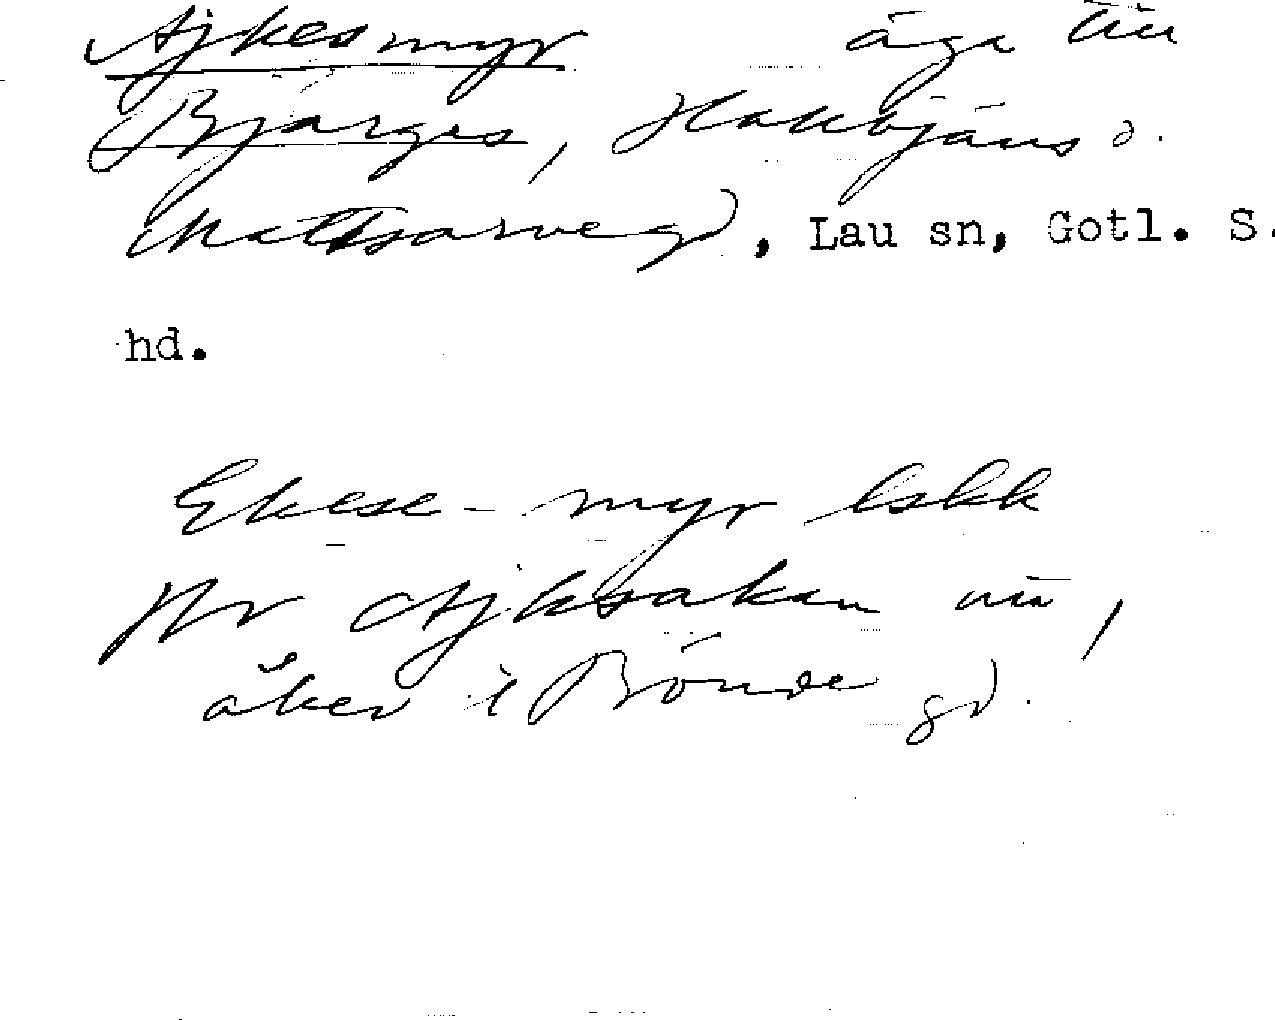 Ajkesmyr äga till
Bjärges, Hallbjäns o.
Mattsarve gd, Lau sn, Gotl. S.
hd.
Ekese-myr lskk
för Ajksakan nu,
åker i Bönde gd.